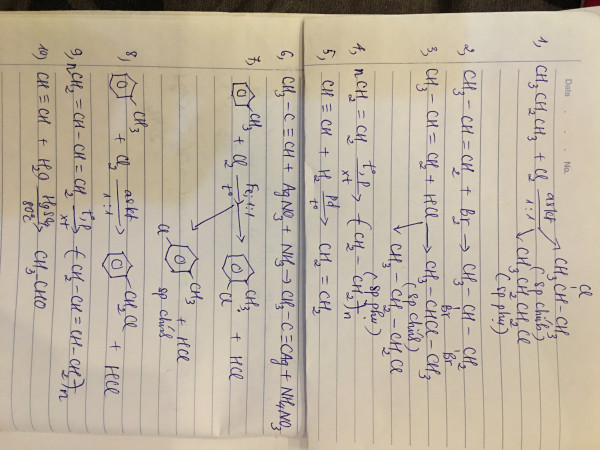 Date No.
Cl
1, CH3CH2CH3 + Cl2 askt 1:1 → CH3CH-CH3
(sp chính)
CH3CH2CH2Cl
(sp phụ)
2, CH3-CH=CH2 + Br2 → CH3-CH-CH2
Br Br
3, CH3-CH=CH2 + HCl → CH3-CHCl-CH3
(sp chính)
CH3-CH2-CH2Cl
(sp phụ)
4, nCH2=CH2 t°,p xt → (CH2-CH2)n
5, CH≡CH + H2 Pd t° → CH2=CH2
6, CH3-C≡CH + AgNO3 + NH3 → CH3-C≡CAg + NH4NO3
7, CH3 + Cl2 Fe,1:1 t° → CH3 Cl + HCl
CH3 Cl + HCl
sp chính
8, CH3 + Cl2 askt 1:1 → CH2Cl + HCl
9, nCH2=CH-CH=CH2 t°,p xt → (CH2-CH=CH-CH2)n
10, CH≡CH + H2O HgSO4 80°C → CH3CHO